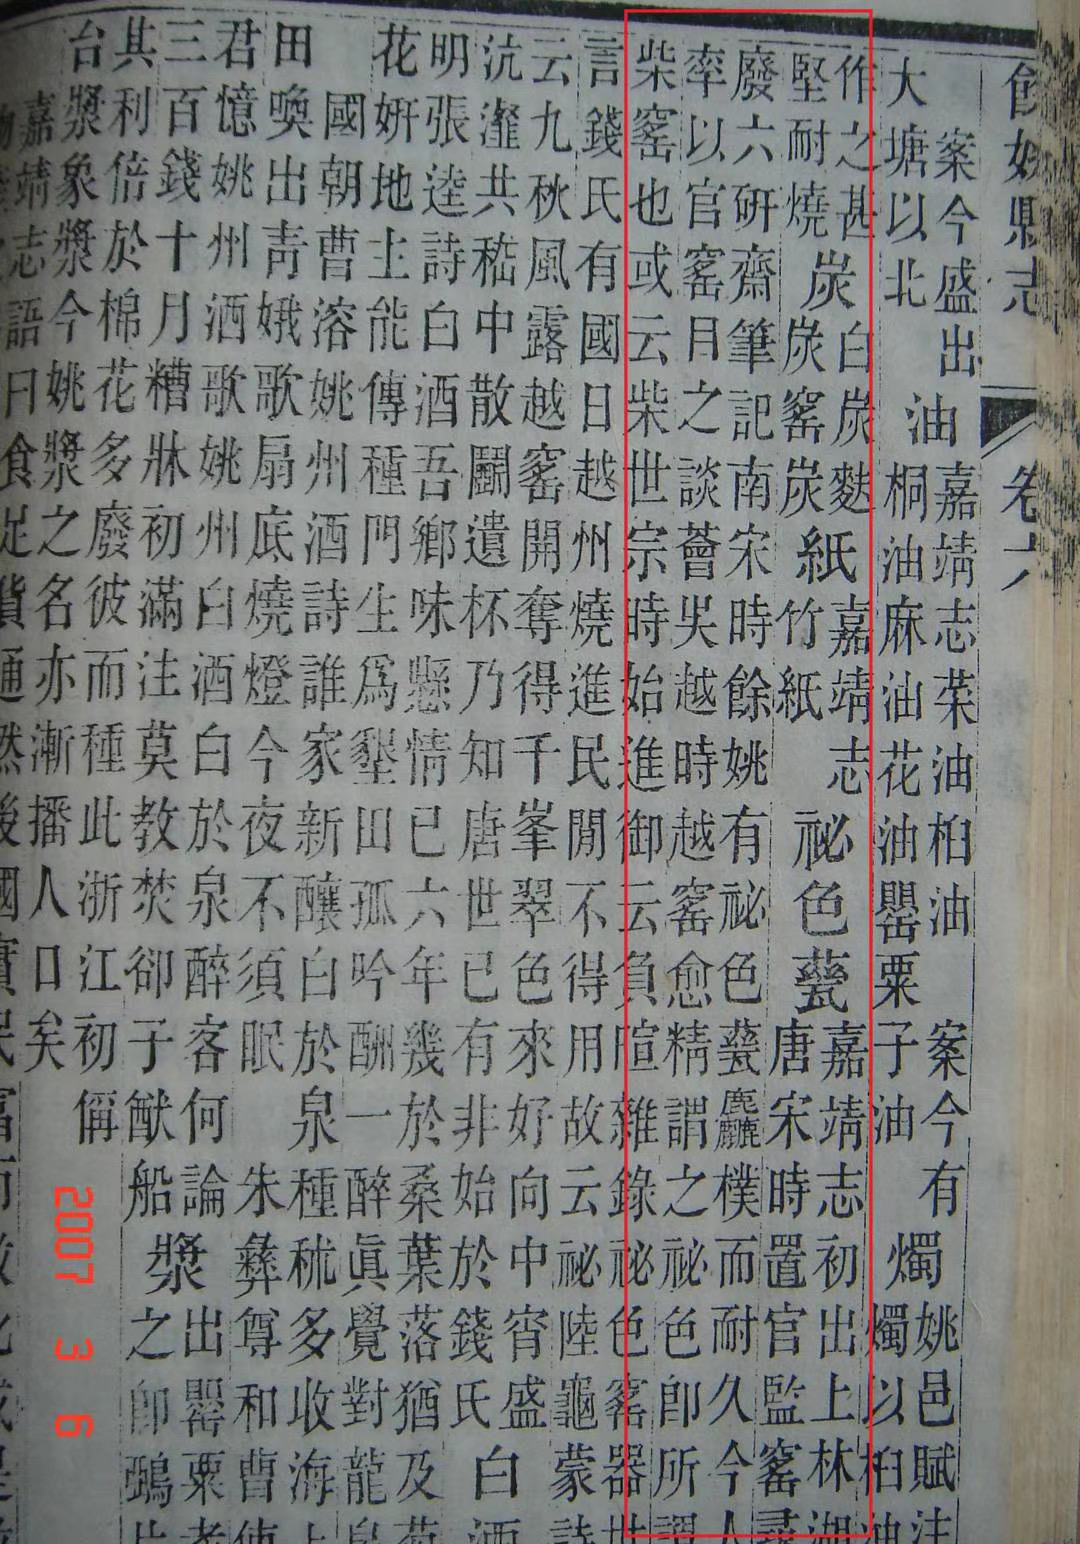 餘姚縣志
卷六
案今盛出
大塘以北
油
嘉靖志菜油桕油
桐油麻油花油罌粟子油
案今有
燭
姚邑賦注
燭以桕油
作之甚
堅耐燒
炭
白炭麩
炭窰炭
紙
嘉靖志
竹紙
祕色甆
嘉靖志初出上林湖
唐宋時置官監窰尋
廢六研齋筆記南宋時餘姚有祕色甆麤樸而耐久今人
率以官窰月之談薈吳越時越窰愈精謂之祕色卽所謂
柴窰也或云柴世宗時始進御云負暄雜錄祕色窰器世
言錢氏有國日越州燒進民閒不得用故云祕陸龜蒙詩
云九秋風露越窰開奪得千峯翠色來好向中宵盛
沆瀣共嵇中散鬭遺杯乃知唐世已有非始於錢氏
白酒
明張逵詩白酒吾鄉味懸情已六年幾於桑葉落猶及菊
花妍地土能傳種門生爲墾田孤吟酬一醉眞覺對龍泉
國朝曹溶姚州酒詩誰家新釀白於泉種秫多收海上
田喚出靑娥歌扇底燒燈今夜不須眠朱彝尊和曹使
君憶姚州酒歌姚州白酒白於泉醉客何論
三百錢十月糟牀初滿注莫教焚卻子猷船
漿
出罌粟者
之卽鵶片
其利倍於棉花多廢彼而種此浙江初偁
台漿象漿今姚漿之名亦漸播人口矣
嘉靖志語曰食足貨通然後國實民富
2007 3 6